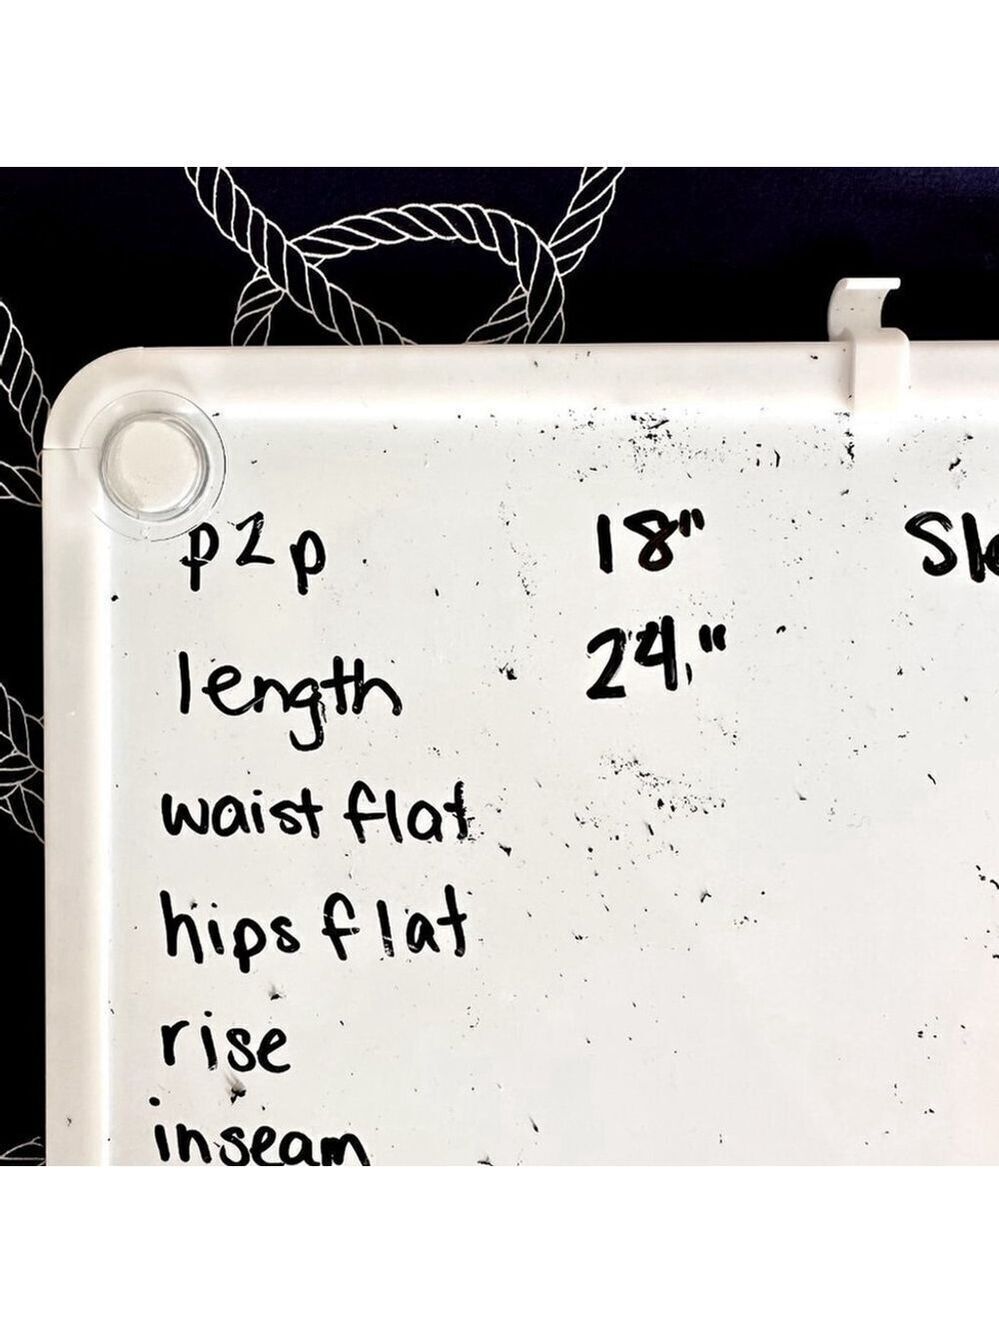 p2p 18"
length 24"
waist flat
hips flat
rise
inseam